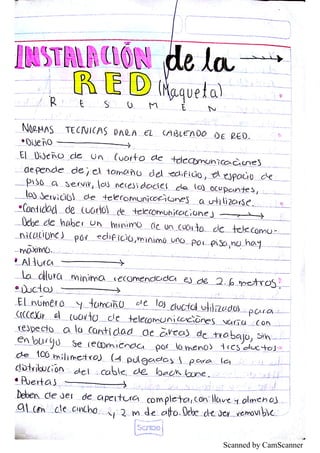 INSTALACIÓN de la
RED (Maqueta)
RESUMEN
NORMAS TECNICAS PARA EL CABLEADO DE RED.
• Diseño
El Diseño de un Cuarto de telecomunicaciones
depende de; el tamaño del edificio, el espacio de
piso a servir, las necesidades de los ocupantes,
los servicios de telecomunicaciones a utilizarse.
• Cantidad de cuartos de telecomunicaciones
Debe de haber un minimo de un cuarto de telecomu-
nicaciones por edificio, minimo uno por piso, no hay
máximo.
• Altura
La altura minima recomendada es de 2.6 metros.
• Ductos
El número y tamaño de los ductos utilizados para
accesar el cuarto de telecomunicaciones varia con
respecto a la cantidad de áreas de trabajo, sin
enburgo se recomienda por lo menos tres ductos
de 100 milimetros (4 pulgadas) para la
distribución del cable de back bone.
• Puertas
Deben de ser de apertura completa, con llave y almenos
91 cm de ancho y 2 m de alto. Debe de ser removible
Scribe
Scanned by CamScanner